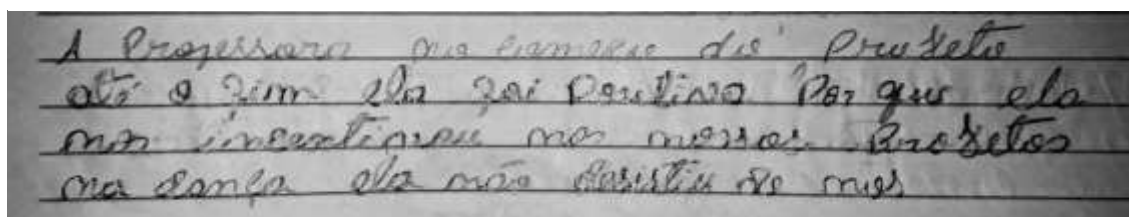 A Professora no começo do Projeto
até o fim ela foi Positiva Por que ela
nos incentivou nos nossos Projetos
na dança ela não desistiu de nos